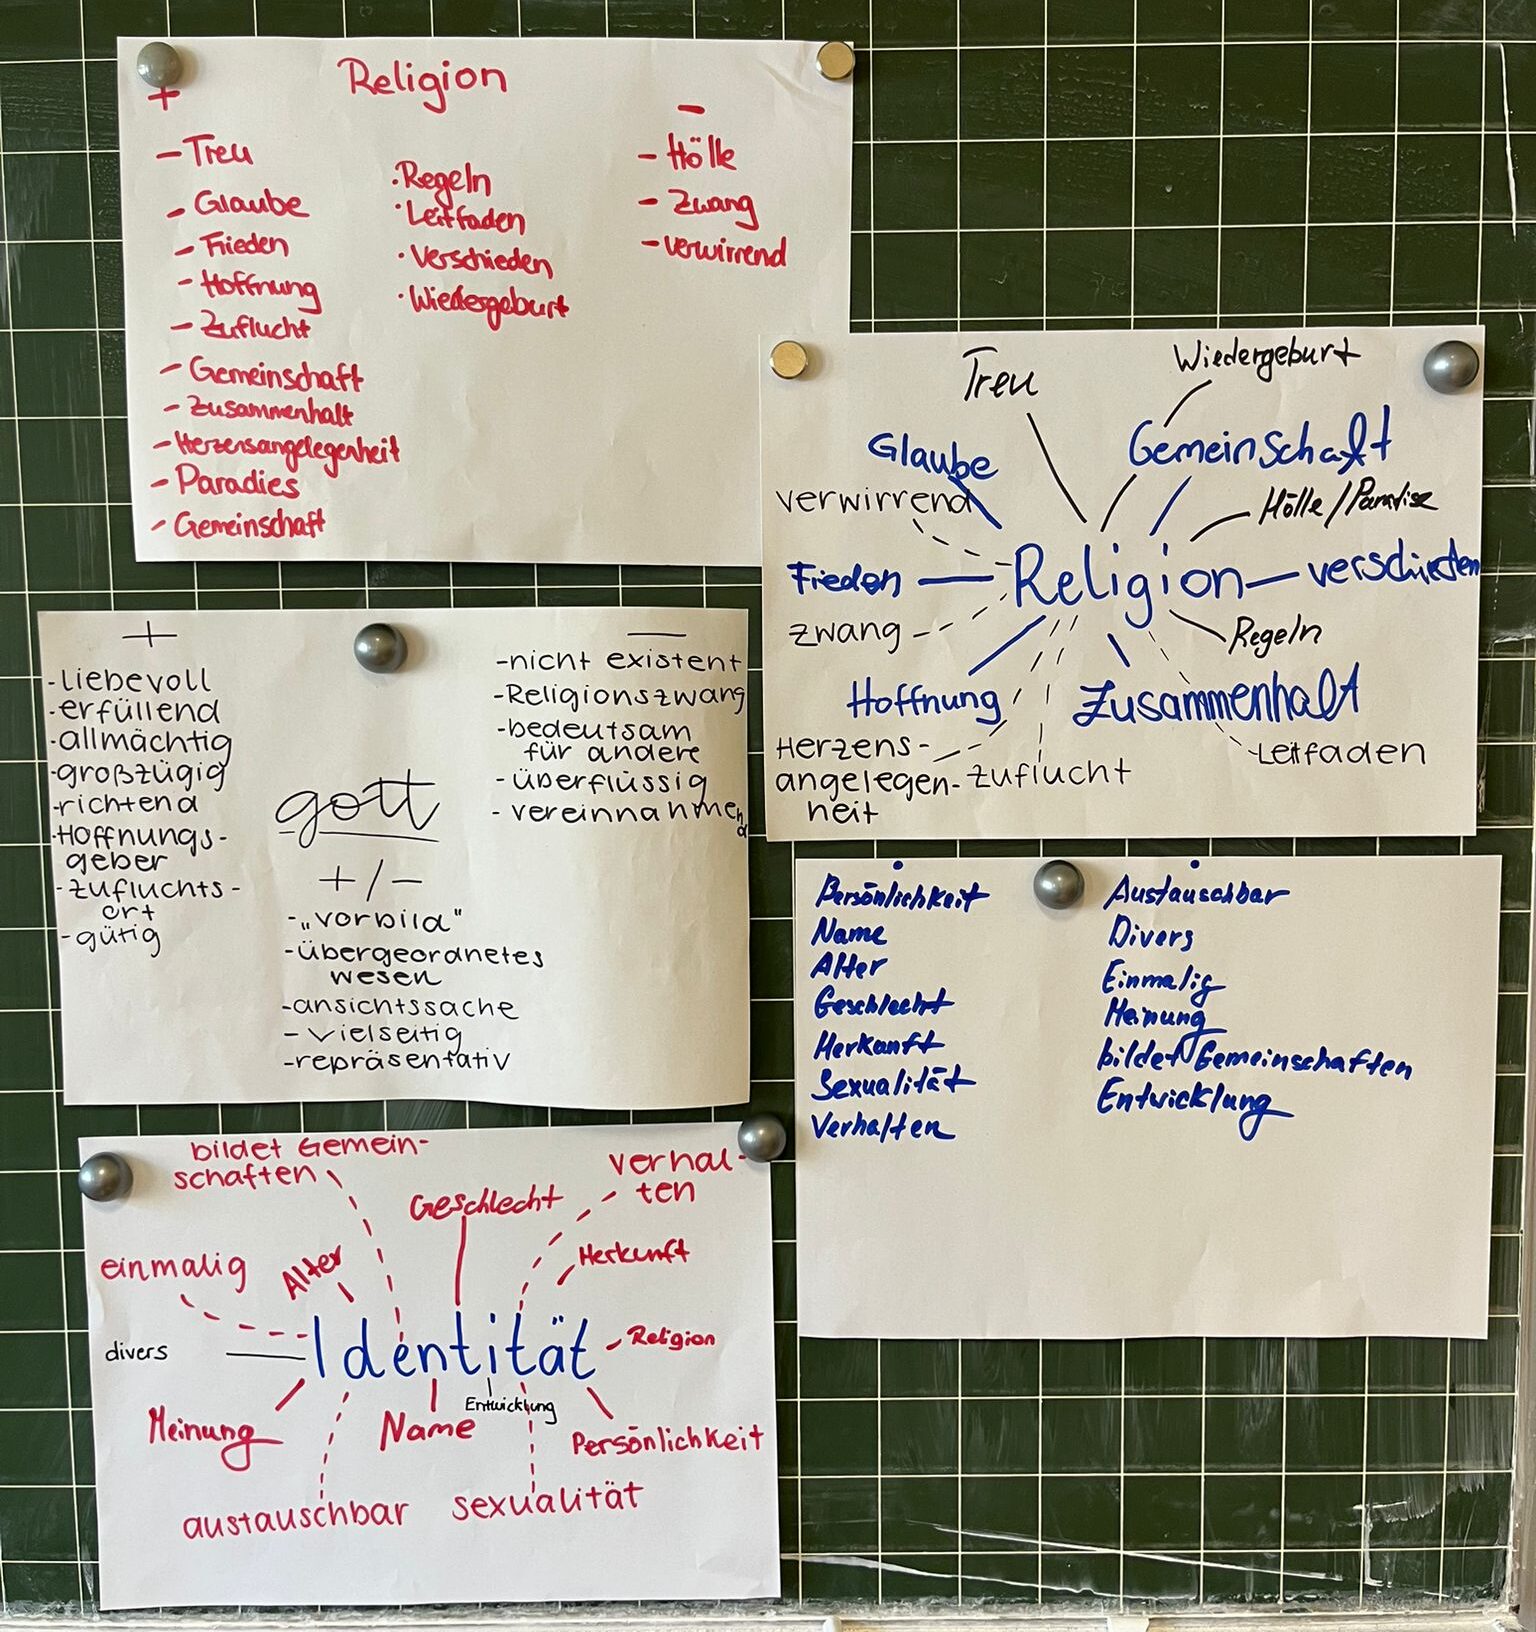 Religion
+
– Treu
– Glaube
– Frieden
– Hoffnung
– Zuflucht
– Gemeinschaft
– Zusammenhalt
– Herzensangelegenheit
– Paradies
– Gemeinschaft
· Regeln
· Leitfaden
· Verschieden
· Wiedergeburt
–
– Hölle
– Zwang
– verwirrend
Treu
Wiedergeburt
Glaube
Gemeinschaft
verwirrend
Hölle / Paradise
Frieden
Religion
verschieden
zwang
Regeln
Hoffnung
Zusammenhalt
Herzens-
angelegen-
heit
zuflucht
Leitfaden
+
- liebevoll
- erfüllend
- allmächtig
- großzügig
- richtend
- Hoffnungs-
geber
- zufluchts-
ort
- gütig
gott
+/–
- „vorbild“
- übergeordnetes
wesen
- ansichtssache
- vielseitig
- repräsentativ
—
- nicht existent
- Religionszwang
- bedeutsam
für andere
- überflüssig
- vereinnahmend
Persönlichkeit
Name
Alter
Geschlecht
Herkunft
Sexualität
Verhalten
Austauschbar
Divers
Einmalig
Meinung
bildet Gemeinschaften
Entwicklung
bildet Gemein-
schaften
Geschlecht
verhal-
ten
einmalig
Alter
Herkunft
divers
Identität
Religion
Meinung
Name
Entwicklung
Persönlichkeit
austauschbar
sexualität